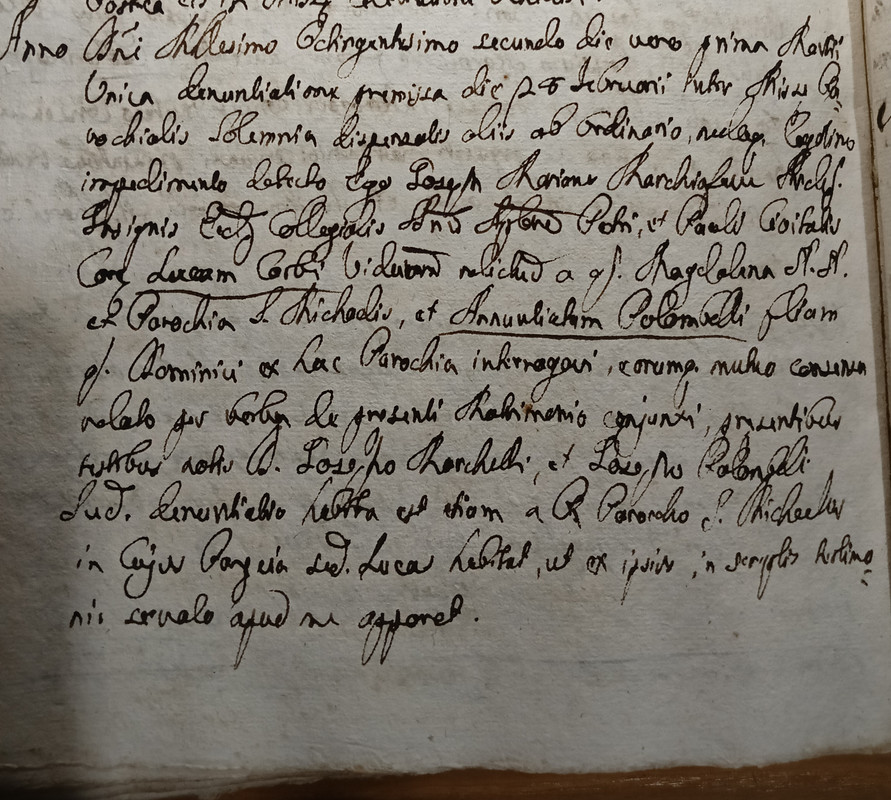 Postea eis in
Anno Dñi Millesimo Octingentesimo secundo die vero prima Martii
Unica denuntiatione premissa die 28 Februarii inter Missæ Pa-
rochialis Solemnia dispensatis aliis ab Ordinario, nulloq. Legitimo
impedimento detecto Ego Joseph Marione Archip.
Insignis Eccl. Collegialis Petri, et Pauli Civitatis
Lucam Corbi Viduum relictum a q. Magdalena N. N.
et Parochia S. Michaelis, et Annuntiatam Polombelli filiam
q. Dominici ex hac Parochia interrogavi, eorumq. mutuo consensu
per verba de presenti Matrimonio conjunxi, presentibus
testibus notis D. Josepho Marchetti, et Josepho Palombelli
Sud. denuntiatio habita est etiam a R. Parocho S. Michaelis
in Cujus Parœcia sud. Lucas habitat, ut ex ipsius in scriptis testimo-
nii servato apud me apparet.